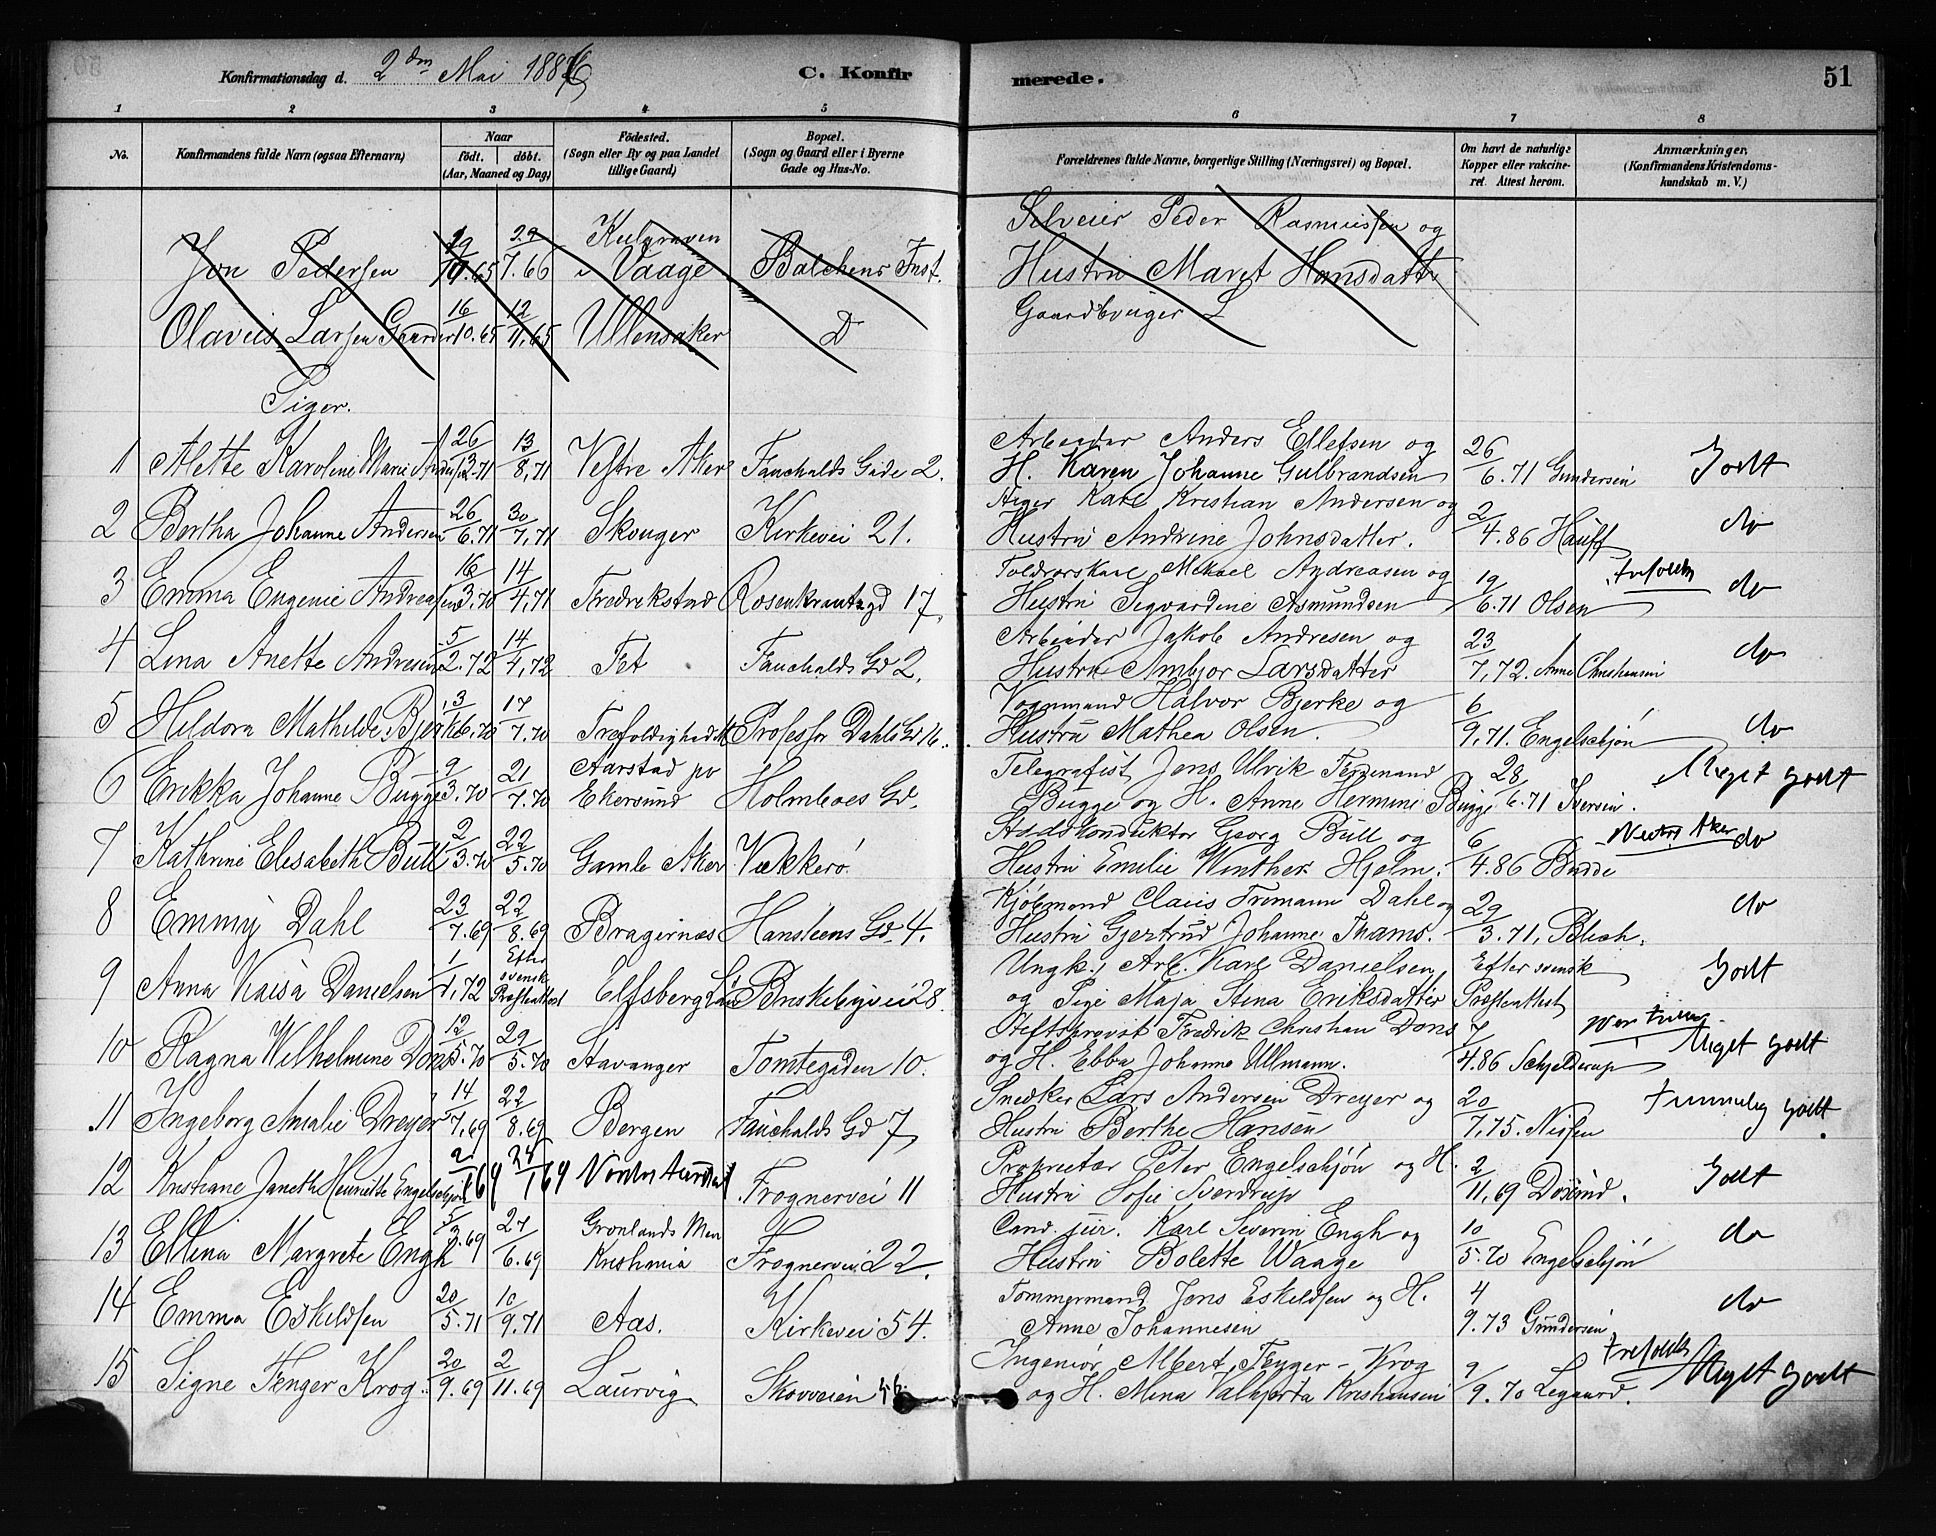 Konfirmationsdag d. 2den Mai 1886 C. Konfirmerede. 51
1 2 3 4 5 6 7 8
No. Konfirmandens fulde Navn (ogsaa Efternavn) Naar födt. döbt. (Aar, Maaned og Dag) Födested. (Sogn eller By og paa Landet tillige Gaard) Bopæl. (Sogn og Gaard eller i Byerne Gade og Hus-No. Forældrenes fulde Navne, borgerlige Stilling (Næringsvei) og Bopæl. Om havt de naturlige Kopper eller vakcineret. Attest herom. Anmærkninger. (Konfirmandens Kristendomskundskab m. V.)
Jon Pedersen 29/7.66 i Vaage Balchens Inst. Selveier Peder Rasmussen og
Hustru Maret Hansdatter
Olavus Larsen Gaarder 16/10.65 12/11.65 Ullensaker D Gaardbruger L
Piger.
1 Alette Karoline Marie 26 13/8.71 Vestre Aker Fauchalds Gade 2. Arbeider Anders Ellefsen og
H. Karen Johanne Gulbrandsen 26/6.71 Gundersen Godt
2 Bertha Johanne Andersen 26/6.71 30/7.71 Skouger Kirkevei 21. Karl Kristian Andersen og
Hustru Andrine Johnsdatter. 2/4.86 Hauff do
3 Emma Engenie Andreasen 16/3.70 14/4.71 Fredrikstad Rosenkrantzgd 17 Toldrorskarl Mikael Andreasen og
Hustru Segvardine Asmundsen 19/6.71 Olsen Trefoldh do
4 Lina Anette Andresen 5/2.72 14/4.72 Fet Fauchalds Gd 2. Arbeider Jakob Andresen og
Hustru Ambjor Larsdatter 23/7.72. Anne Christensen do
5 Heldora Mathilde Bjerke 3/6.70 17/7.70 Trefoldighed Professor Dahls Gd 16. Vognmand Halvor Bjerke og
Hustru Mathea Olsen. 6/9.71. Engelschjön do
6 Erikka Johanne Bugge 9/3.70 21/7.70 Aarstad pr Ekersund Holmboes Gd. Telegrafist Jens Ulrik Ferdinand
Bugge og H. Anne Hermine Bugge 28/6.71 Iversen. Meget godt
7 Kathrine Elisabeth Bull 2/3.70 22/5.70 Gamle Aker Vækkerö. Stadskonduktör Georg Bull og
Hustru Emilie Winther Hjelm. 6/4.86 Budde Vestre Aker do
8 Emmy Dahl 23/7.69 22/8.69 Bragernæs Hansteens Gd. 4. Kjöbmand Claus Fremann Dahl og
Hustru Gjertrud Johanne Thams. 29/3.71. Blich. do
9 Anna Kaisa Danielsen 1/1.72 Efter svensk Præsteattest Elfsberg Län Briskebyvei 28. Ungk. Arb. Karl Danielsen,
og Pige Maja Stina Eriksdatter Efter svensk Præsteattest Godt
10 Ragna Wilhelmine Dons 12/5.70 29/5.70 Stavanger Tomtegaden 10. Stiftsprovst Fredrik Christian Dons
og H. Ebba Johanne Ullmann. 7/4.86 Schjelderup Meget godt
11 Ingeborg Amalie Dreyer 14/7.69 22/8.69 Bergen Fauchalds Gd 7 Snedker Lars Andersen Dreyer og
Hustru Berthe Hansen 20/7.75. Nissen Temmelig godt
12 Kristiane Janette Henriette Engelschjön 2/1 69 24/1 69 Nordre Frognervei 11 Proprietær Peter Engelschjön og H.
Hustru Sofie Sverdrup 2/11.69 Godt
13 Ellena Margrete Engh 5/3.69 27/6.69 Grönlands Men Kristiania Frognervei 22. Cand. jur. Karl Severin Engh og
Hustru Bolette Waage 10/5.70 Engelschjön do
14 Emma Eskildsen 20/5.71 10/9.71 Aas. Kirkevei 54. Tömmermand Jens Eskildsen og H.
Anne Johannesen 4/9.73 Gundersen do
15 Signe Fenger Krog. 20/9.69 2/11.69 Laurvig Skovveien Ingeniör Albert Fenger-Krog
og H. Mina Valborta Kristiansen 9/9.70 Legaard. Trefoldh Meget godt